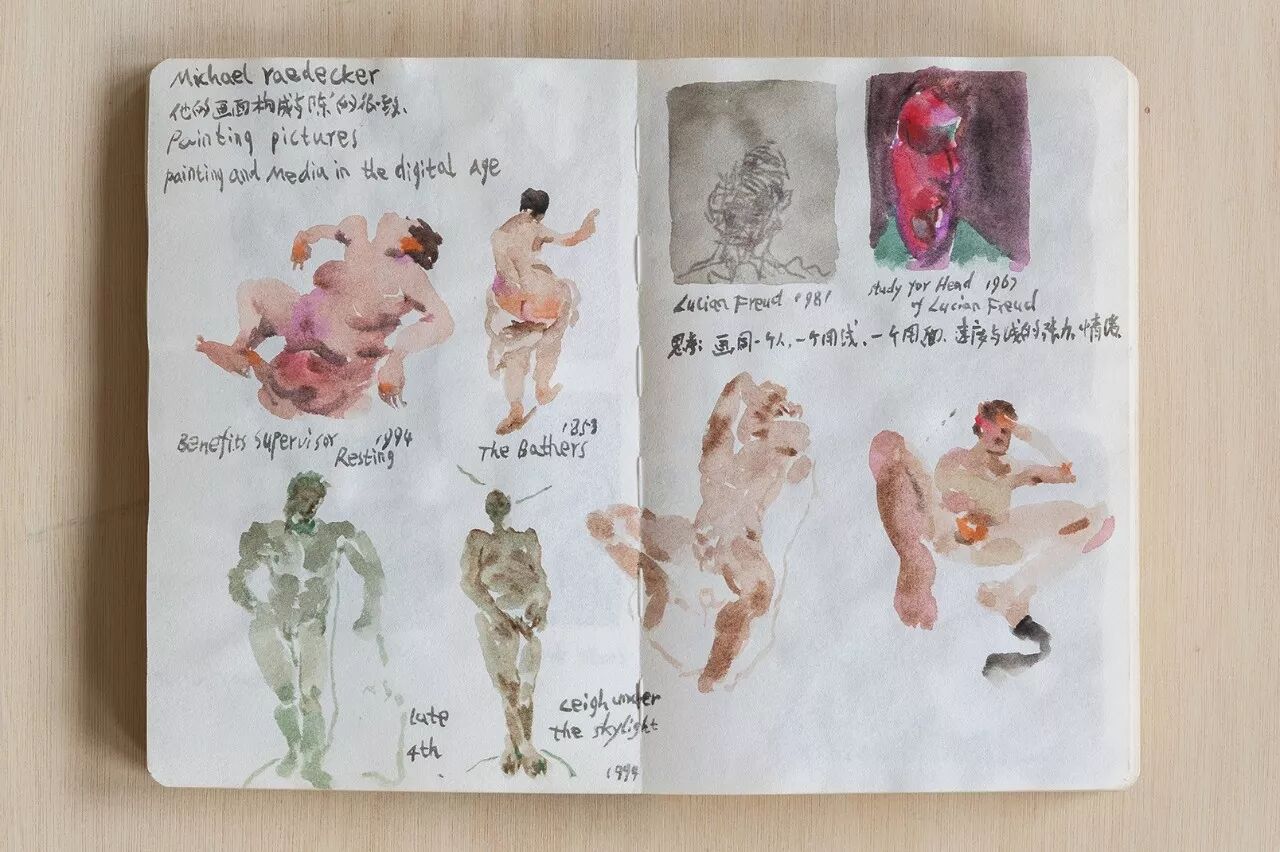 Michael raedecker
他的画面构成与陈 的很
Painting pictures
painting and media in the digital age
Benefits supervisor 1994
Resting
1853
The Bathers
late
4th
Leigh under
the skylight
1994
Lucian Freud 1981
study for Head 1967
of Lucian Freud
思考: 画同一个人, 一个用线, 一个用面. 速度与线的张力.